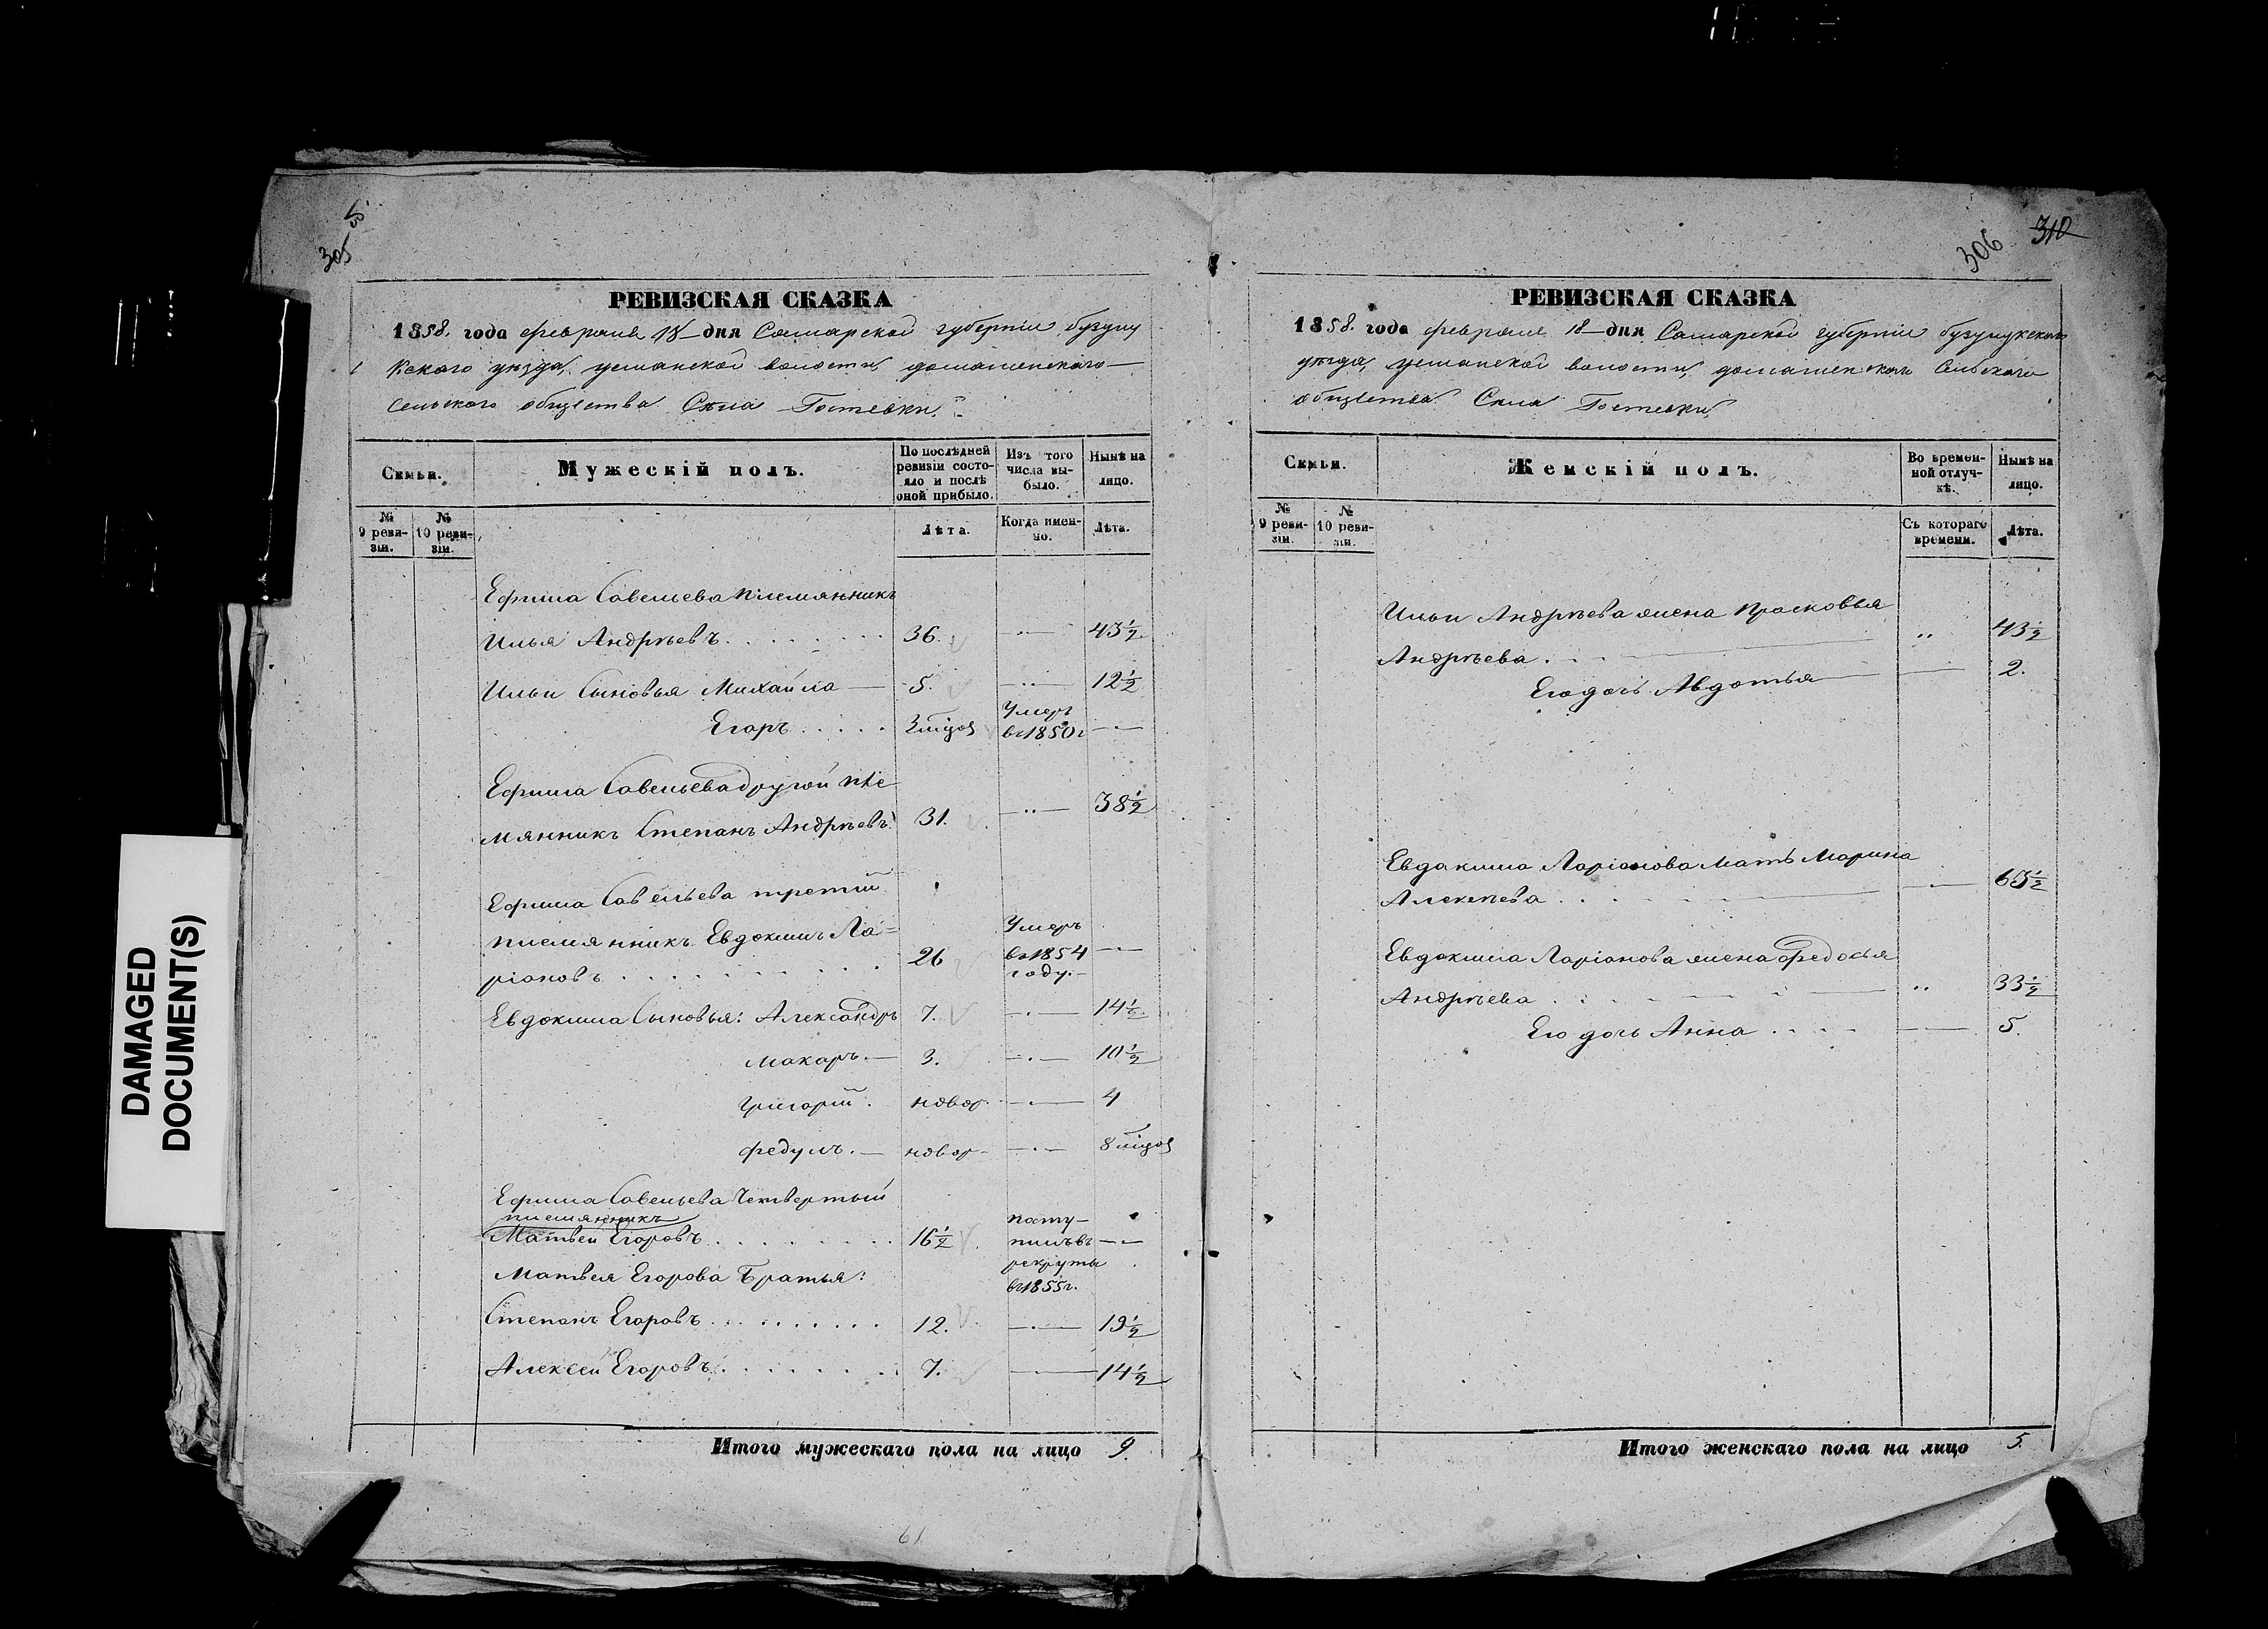 305
306
310
РЕВИЗСКАЯ СКАЗКА
1858. года февраля 18 дня Самарской губернiи бузулу
кскаго уѣзда, усманской волости, домашенскаго
сельскаго общества Села Гостевки
Семьи.
Мужескiй полъ.
По послѣдней ревизiи состо-
яло и послѣ оной прибыло.
Изъ того числа вы-
было.
Нынѣ на лицо.
№ 9 реви-
зiи.
№ 10 реви-
зiи.
Лѣта.
Когда имен-
но.
Лѣта.
Ефима Савельева племянникъ
Илья Андрѣевъ. 36. 43½.
Ильи Сыновья Михайла 5. 12½
Егоръ 3 мѣцов Умеръ въ 1850 г
Ефима Савельева другой пле
мянникъ Степанъ Андрѣевъ. 31. 38½
Ефима Савельева третiй
племянникъ Евдокимъ Ла=
рiоновъ 26 Умеръ въ 1854 году.
Евдокима Сыновья: Александръ 7. 14½.
Макаръ. 3. 10½
Григорiй. новор. 4
Федулъ. новор 8 мѣцов
Ефима Савельева Четвертый
племянникъ
Матвей Егоровъ 16½ посту-
пилъ въ
рекруты
въ 1855 г.
Матвея Егорова Братья:
Степанъ Егоровъ 12. 19½
Алексей Егоровъ 7. 14½
Итого мужескаго пола на лицо 9.
61
РЕВИЗСКАЯ СКАЗКА
1858. года февраля 18 дня Самарской губернiи бузулукскаго
уѣзда, усманской волости, домашенскаго Сельскаго
общества Села Гостевки
Семьи.
Женскiй полъ.
Во времен-
ной отлуч-
кѣ.
Нынѣ на лицо.
№ 9 реви-
зiи.
№ 10 реви-
зiи.
Съ котораго времени.
Лѣта.
Ильи Андрѣева жена Прасковья
Андрѣева. 43½
Его дочь Авдотья 2.
Евдакима Ларiонова Мать Марина
Алекѣева 63½
Евдокима Ларiонова жена Федосья
Андрѣева 33½
Его дочь Анна 5.
Итого женскаго пола на лицо 5.
DAMAGED
DOCUMENT(S)